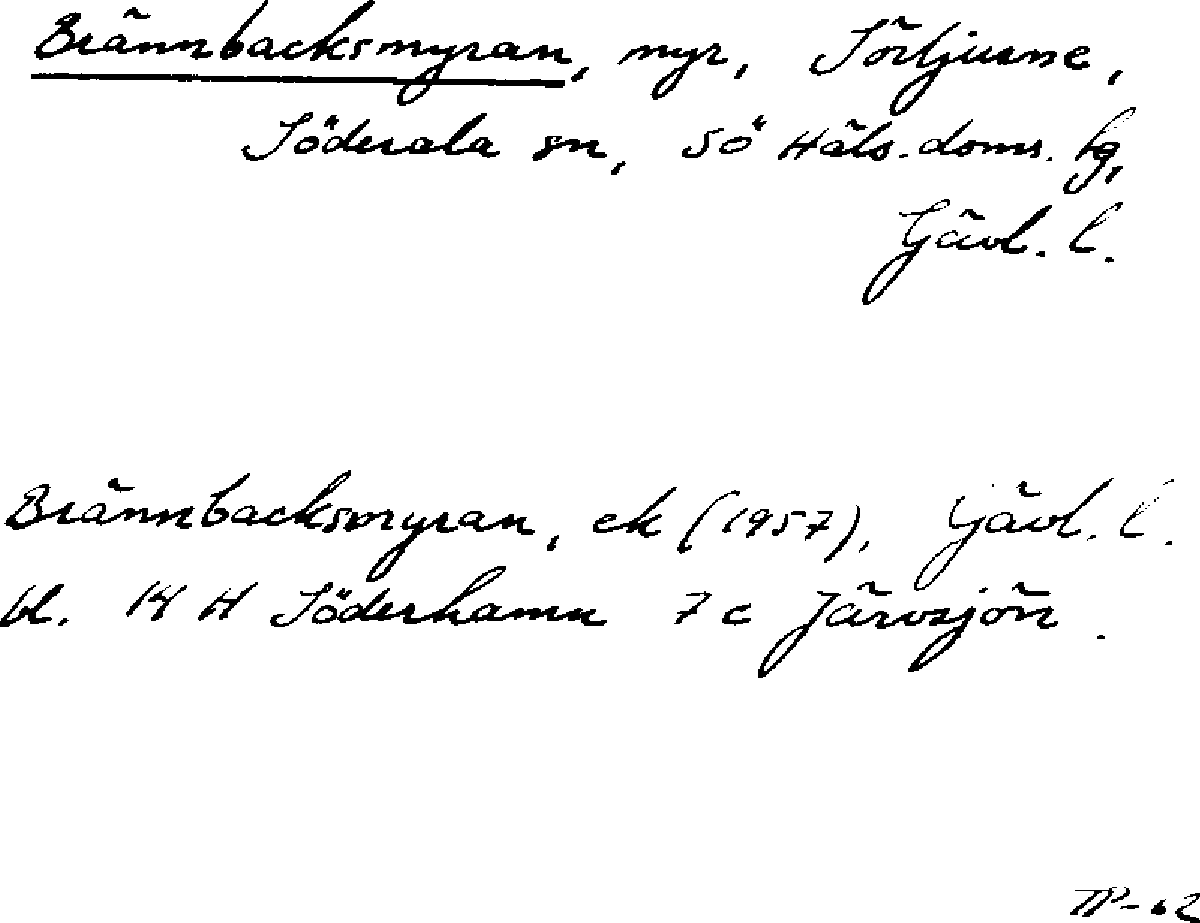 Brännbacksmyran, myr, Sörljusne,
Söderala sn, Sö Häls. doms. hg,
Gävl. l.
Brännbacksmyran, ek (1957), Gävl. l.
bl. 14 H Söderhamn 7 c Järvsjön.
TP-62